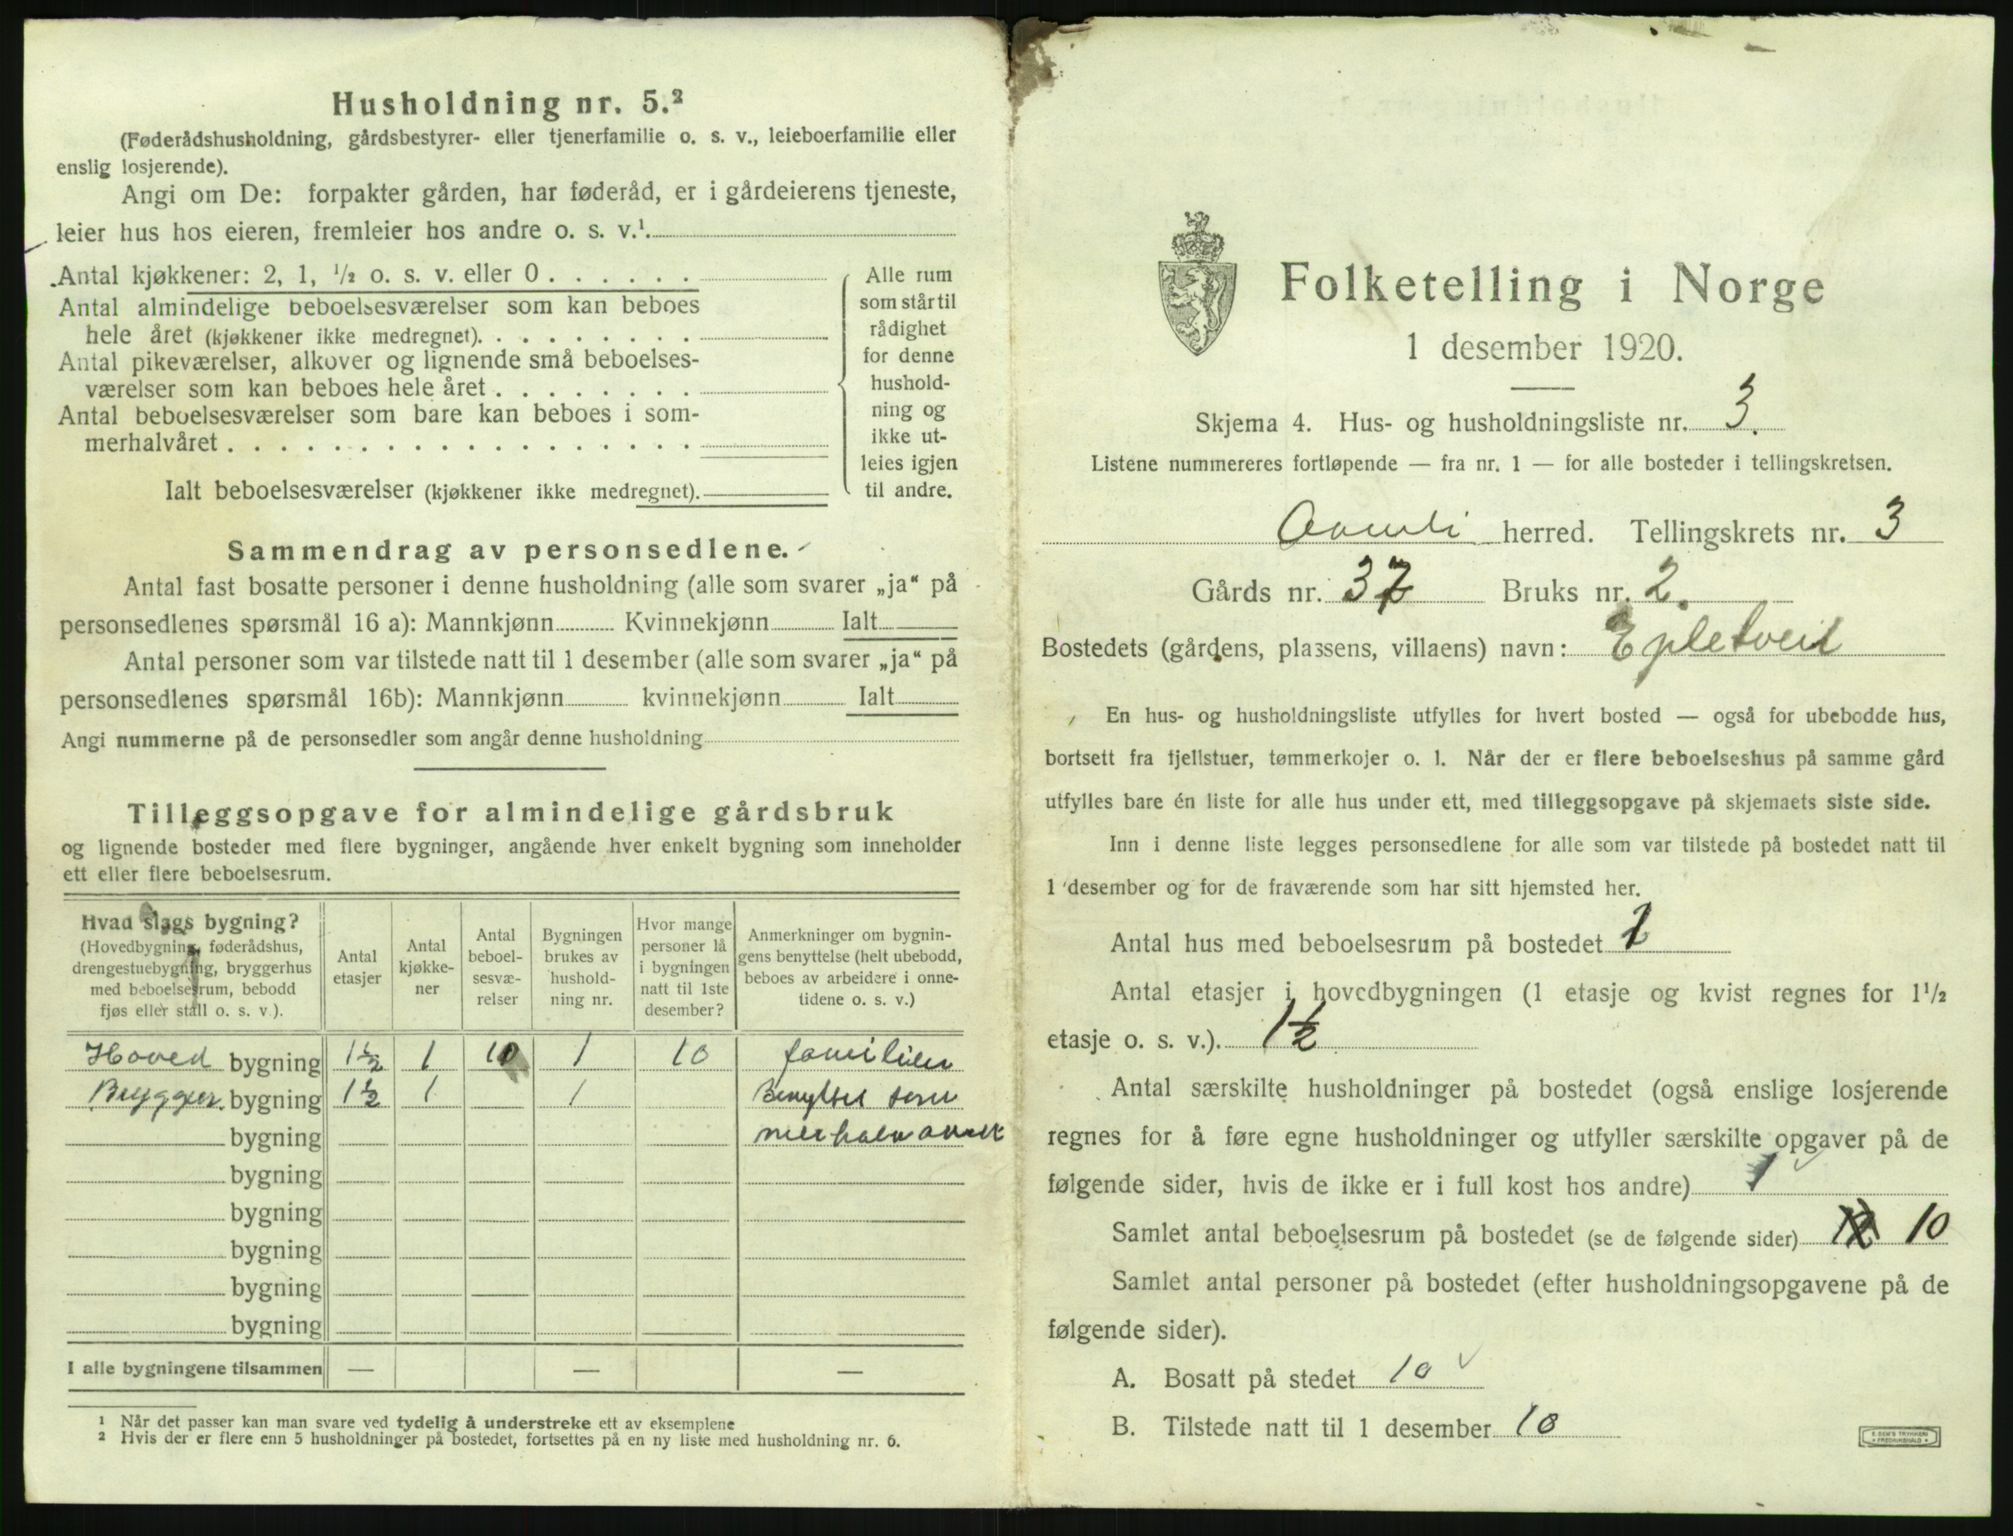 Husholdning nr. 5.²
(Føderådshusholdning, gårdsbestyrer- eller tjenerfamilie o. s. v., leieboerfamilie eller
enslig losjerende).
Angi om De: forpakter gården, har føderåd, er i gårdeierens tjeneste,
leier hus hos eieren, fremleier hos andre o. s. v.¹.
Antal kjøkkener: 2, 1, ½ o. s. v. eller 0 . . . . . .
Antal almindelige beboelsesværelser som kan beboes
hele året (kjøkkener ikke medregnet). . . . . . . . .
Antal pikeværelser, alkover og lignende små beboelses-
værelser som kan beboes hele året . . . . . . . .
Antal beboelsesværelser som bare kan beboes i som-
merhalvåret . . . . . . . . . . . . . . . . . .
Ialt beboelsesværelser (kjøkkener ikke medregnet).
Alle rum
som står til
rådighet
for denne
hushold-
ning og
ikke ut-
leies igjen
til andre.
Sammendrag av personsedlene.
Antal fast bosatte personer i denne husholdning (alle som svarer „ja“ på
personsedlenes spørsmål 16 a): Mannkjønn Kvinnekjønn Ialt
Antal personer som var tilstede natt til 1 desember (alle som svarer „ja“ på
personsedlenes spørsmål 16b): Mannkjønn kvinnekjønn Ialt
Angi nummerne på de personsedler som angår denne husholdning
Tilleggsopgave for almindelige gårdsbruk
og lignende bosteder med flere bygninger, angående hver enkelt bygning som inneholder
ett eller flere beboelsesrum.
Hvad slags bygning?
(Hovedbygning, føderådshus,
drengestuebygning, bryggerhus
med beboelsesrum, bebodd
fjøs eller stall o. s. v.).
Antal
etasjer
Antal
kjøkke-
ner
Antal
beboel-
sesvæ-
relser
Bygningen
brukes av
hushold-
ning nr.
Hvor mange
personer lå
i bygningen
natt til 1ste
desember?
Anmerkninger om bygnin-
gens benyttelse (helt ubebodd,
beboes av arbeidere i onne-
tidene o. s. v.)
Hoved bygning 1½ 1 10 1 10 familien
Brygger. bygning 1½ 1 1 Benyttet som
bygning merhalvaaret
bygning
bygning
bygning
bygning
bygning
I alle bygningene tilsammen — — —
¹ Når det passer kan man svare ved tydelig å understreke ett av eksemplene
² Hvis der er flere enn 5 husholdninger på bostedet, fortsettes på en ny liste med husholdning nr. 6.
Folketelling i Norge
1 desember 1920.
Skjema 4. Hus- og husholdningsliste nr. 3.
Listene nummereres fortløpende — fra nr. 1 — for alle bosteder i tellingskretsen.
Aamli herred. Tellingskrets nr. 3
Gårds nr. 37 Bruks nr. 2.
Bostedets (gårdens, plassens, villaens) navn: Epletveit
En hus- og husholdningsliste utfylles for hvert bosted — også for ubebodde hus,
bortsett fra fjellstuer, tømmerkojer o. l. Når der er flere beboelseshus på samme gård
utfylles bare én liste for alle hus under ett, med tilleggsopgave på skjemaets siste side.
Inn i denne liste legges personsedlene for alle som var tilstede på bostedet natt til
1 desember og for de fraværende som har sitt hjemsted her.
Antal hus med beboelsesrum på bostedet
Antal etasjer i hovedbygningen (1 etasje og kvist regnes for 1½
etasje o. s. v.). 1½
Antal særskilte husholdninger på bostedet (også enslige losjerende
regnes for å føre egne husholdninger og utfyller særskilte opgaver på de
følgende sider, hvis de ikke er i full kost hos andre) 1
Samlet antal beboelsesrum på bostedet (se de følgende sider) 12 10
Samlet antal personer på bostedet (efter husholdningsopgavene på de
følgende sider).
A. Bosatt på stedet 10
B. Tilstede natt til 1 desember 10